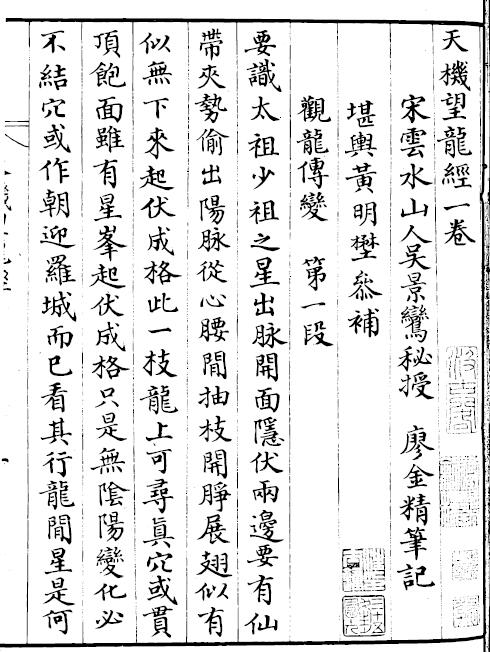 天機望龍經一卷
宋雲水山人吳景鸞秘授 廖金精筆記
堪輿黃明㙳叅補
觀龍傳變 第一段
要識太祖少祖之星出脉開面隱伏兩邊要有仙
帶夾勢偷出陽脉從心腰間抽枝開睜展翅似有
似無下來起伏成格此一枝龍上可尋眞穴或貫
頂飽面雖有星峯起伏成格只是無陰陽變化必
不結穴或作朝迎羅城而已看其行龍間星是何